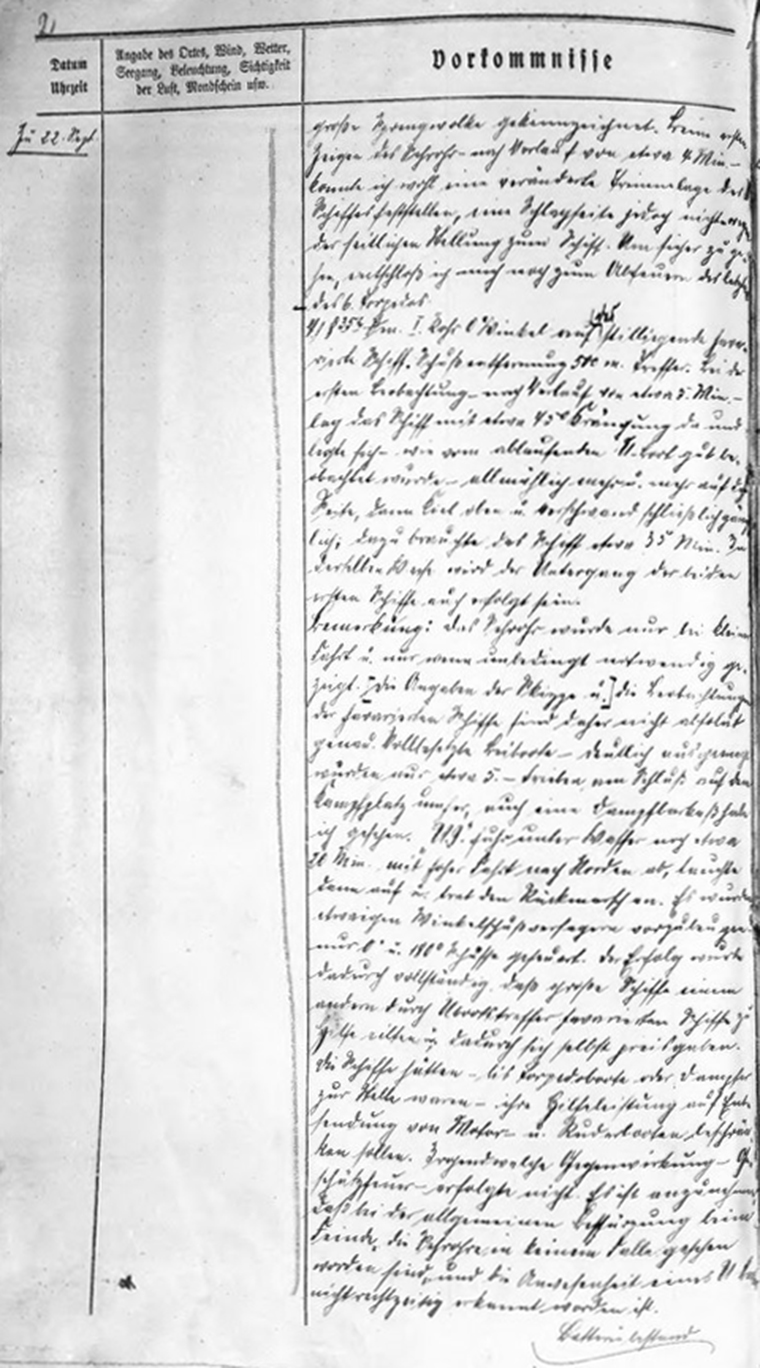 Datum
Uhrzeit
Angabe des Ortes, Wind, Wetter,
Seegang, Beleuchtung, Sichtigkeit
der Luft, Mondschein usw.
Vorkommnisse
Zu 22. Sept.
große Sprengwolke gekennzeichnet. Beim ersten
Zeigen des Sehrohrs – nach Verlauf von etwa 4 Min. –
konnte ich wohl eine veränderte Trimmlage des
Schiffes feststellen, eine Schlagseite jedoch nicht wegen
der seitlichen Stellung zum Schiff. Um sicher zu ge-
hen, entschloß ich mich noch zum Abfeuern des letzten
des 6. Torpedos.
I. Rohr 0° Winkel auf das stilliegende hava-
rierte Schiff. Schußentfernung 500 m. Treffer. Bei der
ersten Beobachtung – nach Verlauf von etwa 5 Min. –
lag das Schiff mit etwa 45° Krängung da und
legte sich – wie vom ablaufenden U. Boot gut be-
obachtet wurde – allmählich mehr u. mehr auf die
Seite, dann Kiel oben u. verschwand schließlich gänz-
lich; dazu brauchte das Schiff etwa 35 Min. In
derselben Weise wird der Untergang der beiden
ersten Schiffe auch erfolgt sein.
Bemerkung: Das Sehrohr wurde nur bei kleiner
Fahrt u. nur wenn unbedingt notwendig ge-
zeigt. [Die Angaben der Skizze u.] die Beobachtungen
der havarierten Schiffe sind daher nicht absolut
genau. Vollbesetzte Beiboote – deutlich
wurden nur etwa 5 – trieben am Schluß auf dem
Kampfplatz umher, auch eine Dampfbarkaß habe
ich gesehen. "U9" fuhr unter Wasser noch etwa
20 Min. mit hoher Fahrt nach Norden ab, tauchte
dann auf u. trat den Rückmarsch an. Es wurden
etwaigen Winkelschußversagern vorzubeugen
nur 0° u. 180° Schüsse gefeuert. Der Erfolg wurde
dadurch vollständig, daß große Schiffe einem
andern durch Ubootstreffer havarierten Schiffe zu
Hilfe eilten u. dadurch sich selbst preisgaben.
Die Schiffe hätten – bis Torpedoboote oder Dampfer
zur Stelle waren – ihre Hilfeleistung auf Ent-
sendung von Motor- u. Ruderbooten beschrän-
ken sollen. Irgendwelche Gegenwirkung – Ge-
schützfeuer – erfolgte nicht. Es ist anzunehmen,
daß bei der allgemeinen Bestürzung beim
Feinde, die Sehrohre in keinem Falle gesehen
worden sind, und die Anwesenheit eines U Bootes
nicht rechtzeitig erkannt worden ist.
Batteriebestand